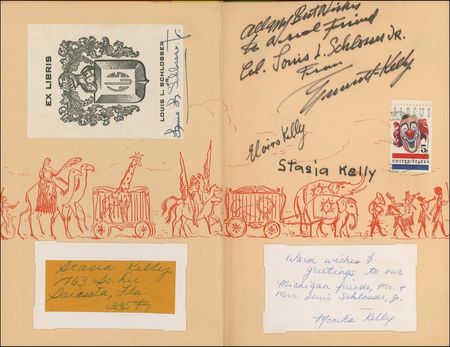 EX LIBRIS
LOUIS L. SCHLOSSER
JR.
Louis L. Schlosser, Jr.
All My Best Wishes
To A real Friend
Col. Louis L. Schlosser Jr.
From
Emmett Kelly
Kelly
Stasia Kelly
CIRCUS
5c
United States
Stasia Kelly
1763 So. Dr.
Sarasota, Fla.
Warm wishes &
greetings to our
Michigan friends, Mr. &
Mrs. Louis Schlosser, Jr.
Monika Kelly